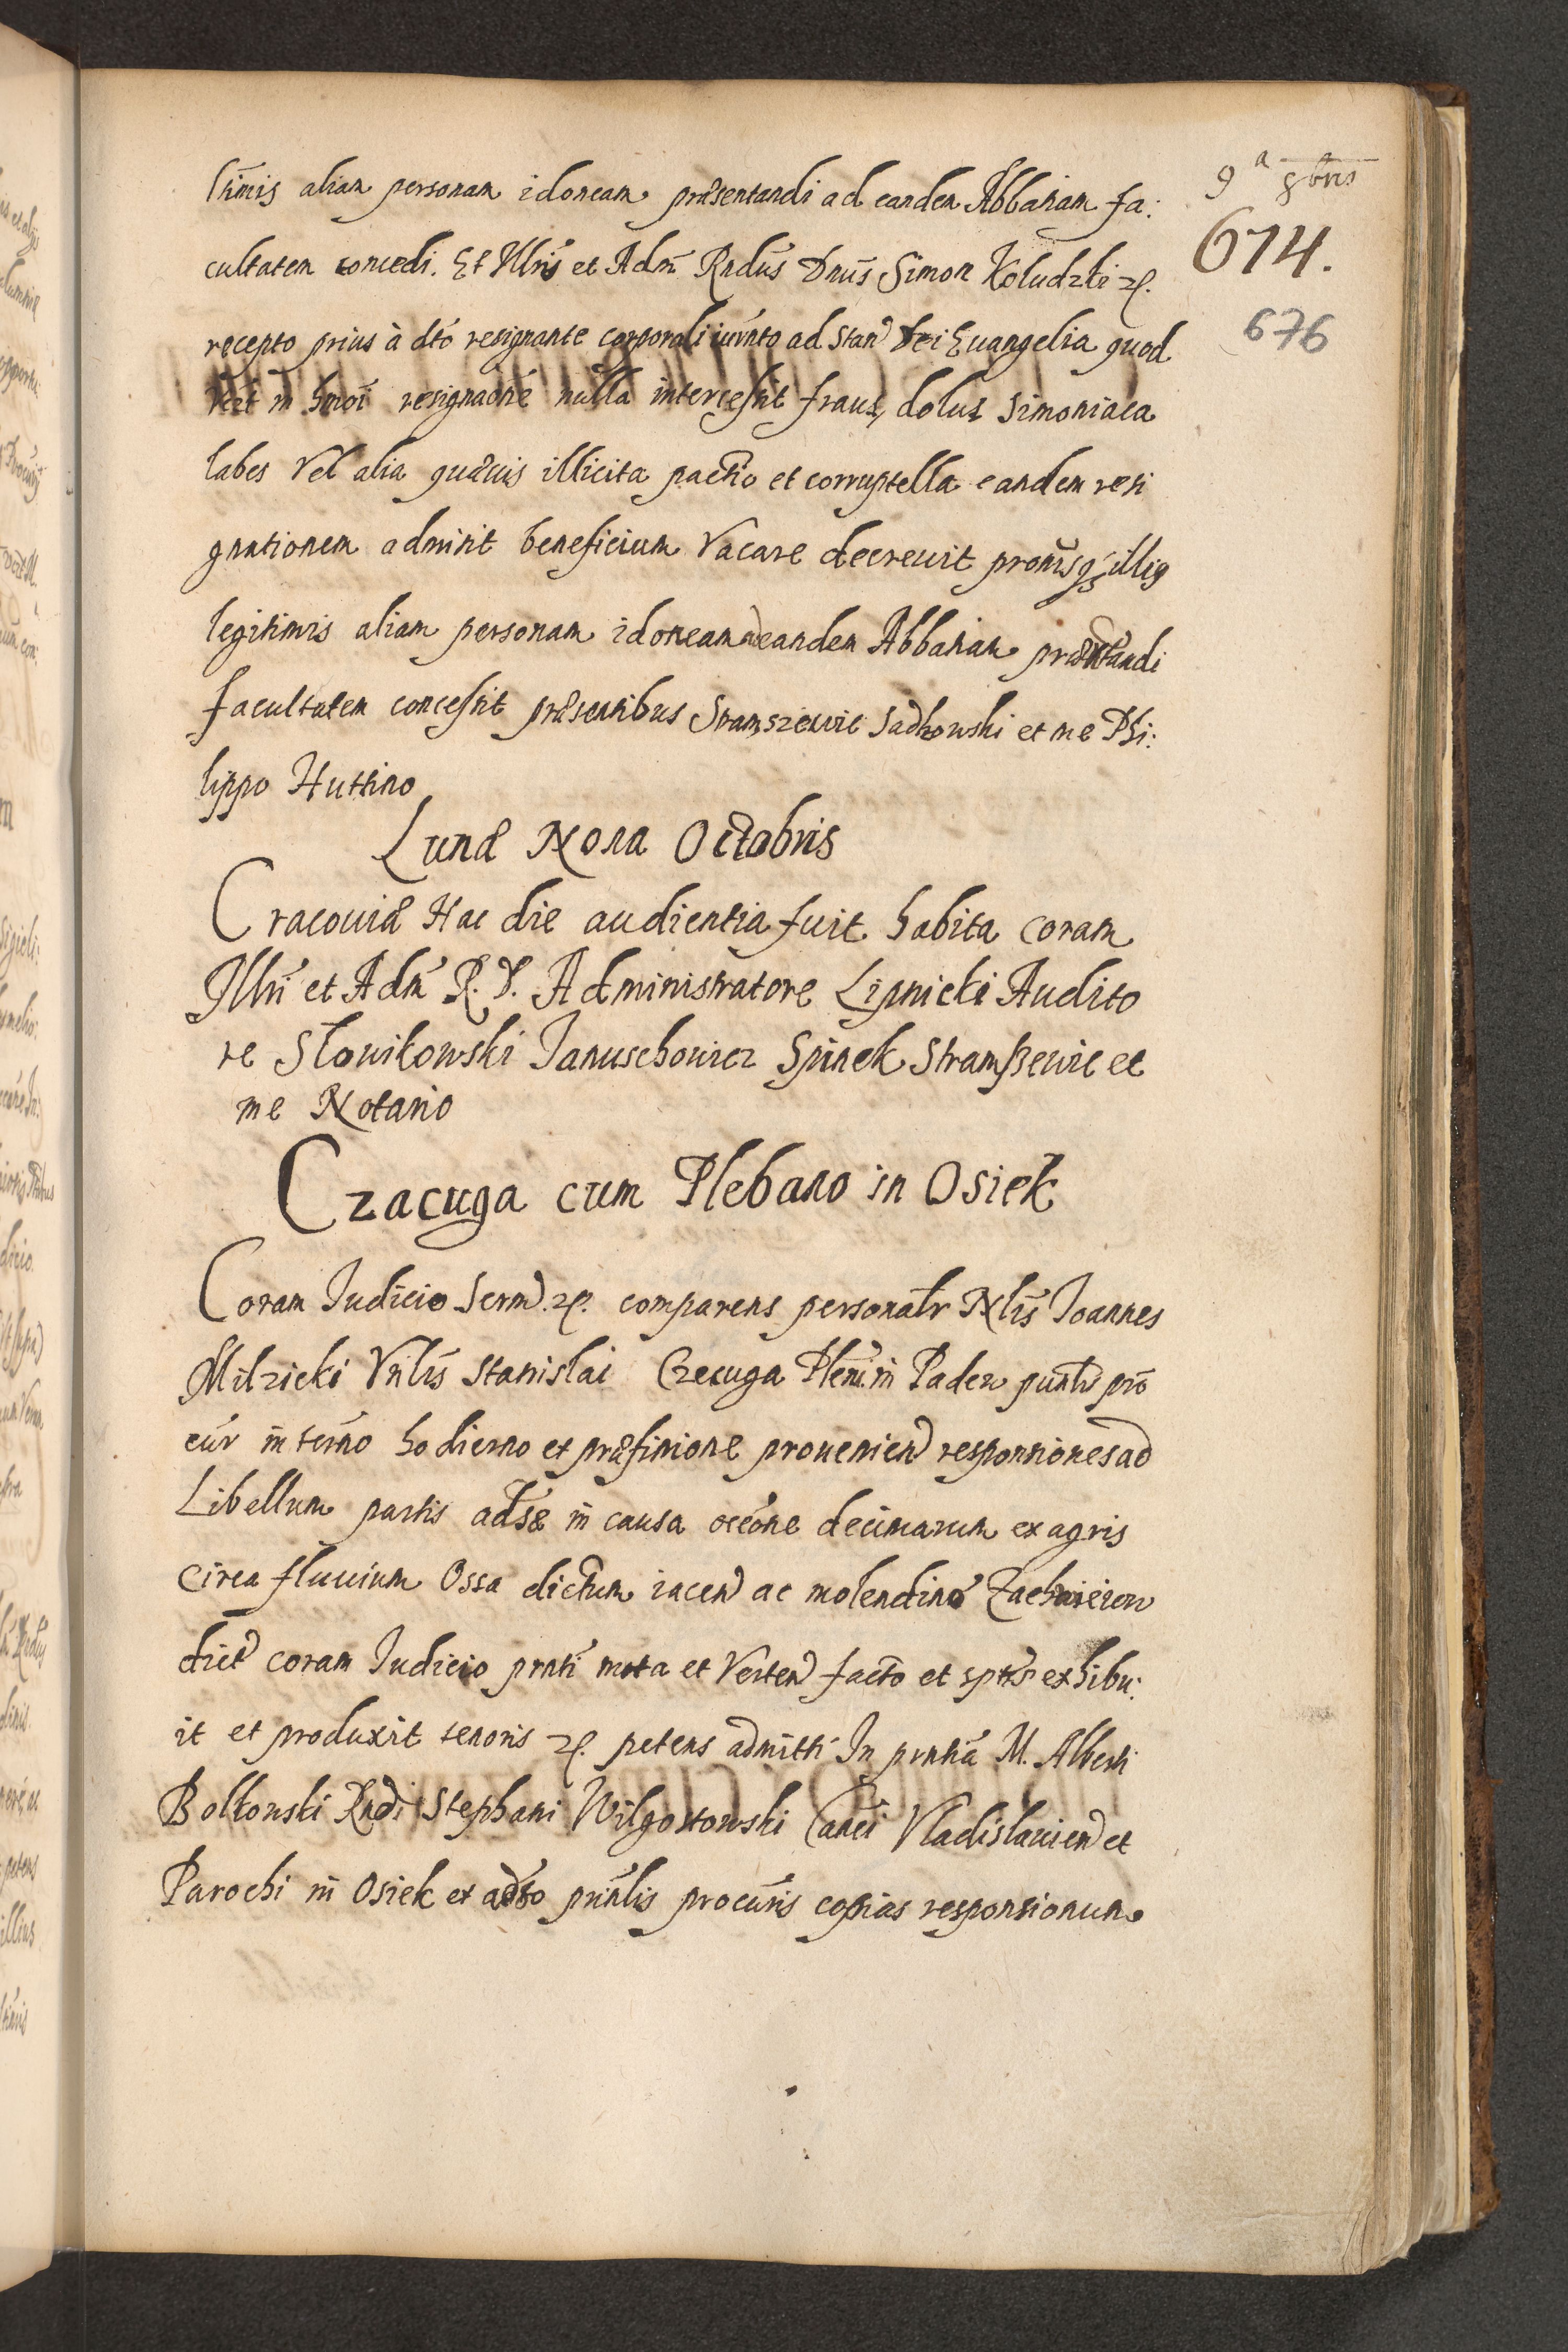 9ª 8bris
674.
676
ltimis aliam personam idoneam præsentandi ad eandem Abbatiam fa:
cultatem concedi. Et Illris et Adm Rndus Dnus Simon Koludzki etc.
recepto prius à dto resignante corporali iurnto ad Stan Dei Euangelia quod
in hmoi resignaone nulla intercessit fraus, dolus Simoniaca
labes Vel alia quæuis illicita pactio et corruptella eandem resi
gnationem admisit beneficium Vacare decreuit
legitimis aliam personam idoneam ad eandem Abbatiam præntandi
facultatem concessit præsentibus Stamszewic Sadkowski et me Phi:
lippo Huttino
Lunæ Nona Octobris
Cracouiæ Hac die audientia fuit habita coram
Illri et Adm R. D. Administratore Lipnicki Audito
re Slowikowski Januschowicz Spinek Stramszewic et
me Notario
Czacuga cum Plebano in Osiek
Coram Judicio Serm etc. comparens personalr Nlis Joannes
Milzicki Stanislai Czecuga in Paden
cur in terno hodierno et præfinione prouenien responsiones ad
Libellum partis adsæ in causa occone decimarum ex agris
circa fluuium Ossa dictum iacen ac molendino
dict coram Judicio prnti mota et Verten facto et exhibu:
it et produxit tenoris etc. petens admitti In prntia M. Alberti
Bolkowski Rndi Stephani Wilgostowski Canci Vladislauien et
Parochi in Osiek ex adso prinlis procuris copias responsionum